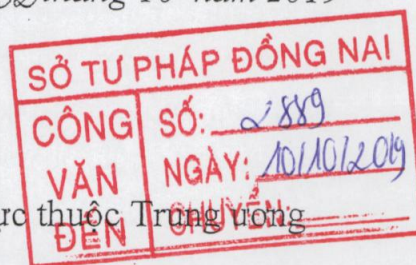 tháng 10 năm 2019
SỞ TƯ PHÁP ĐỒNG NAI
CÔNG VĂN ĐẾN
SỐ: 2889
NGÀY: 10/10/2019
CHUYỂN:
thuộc Trung ương